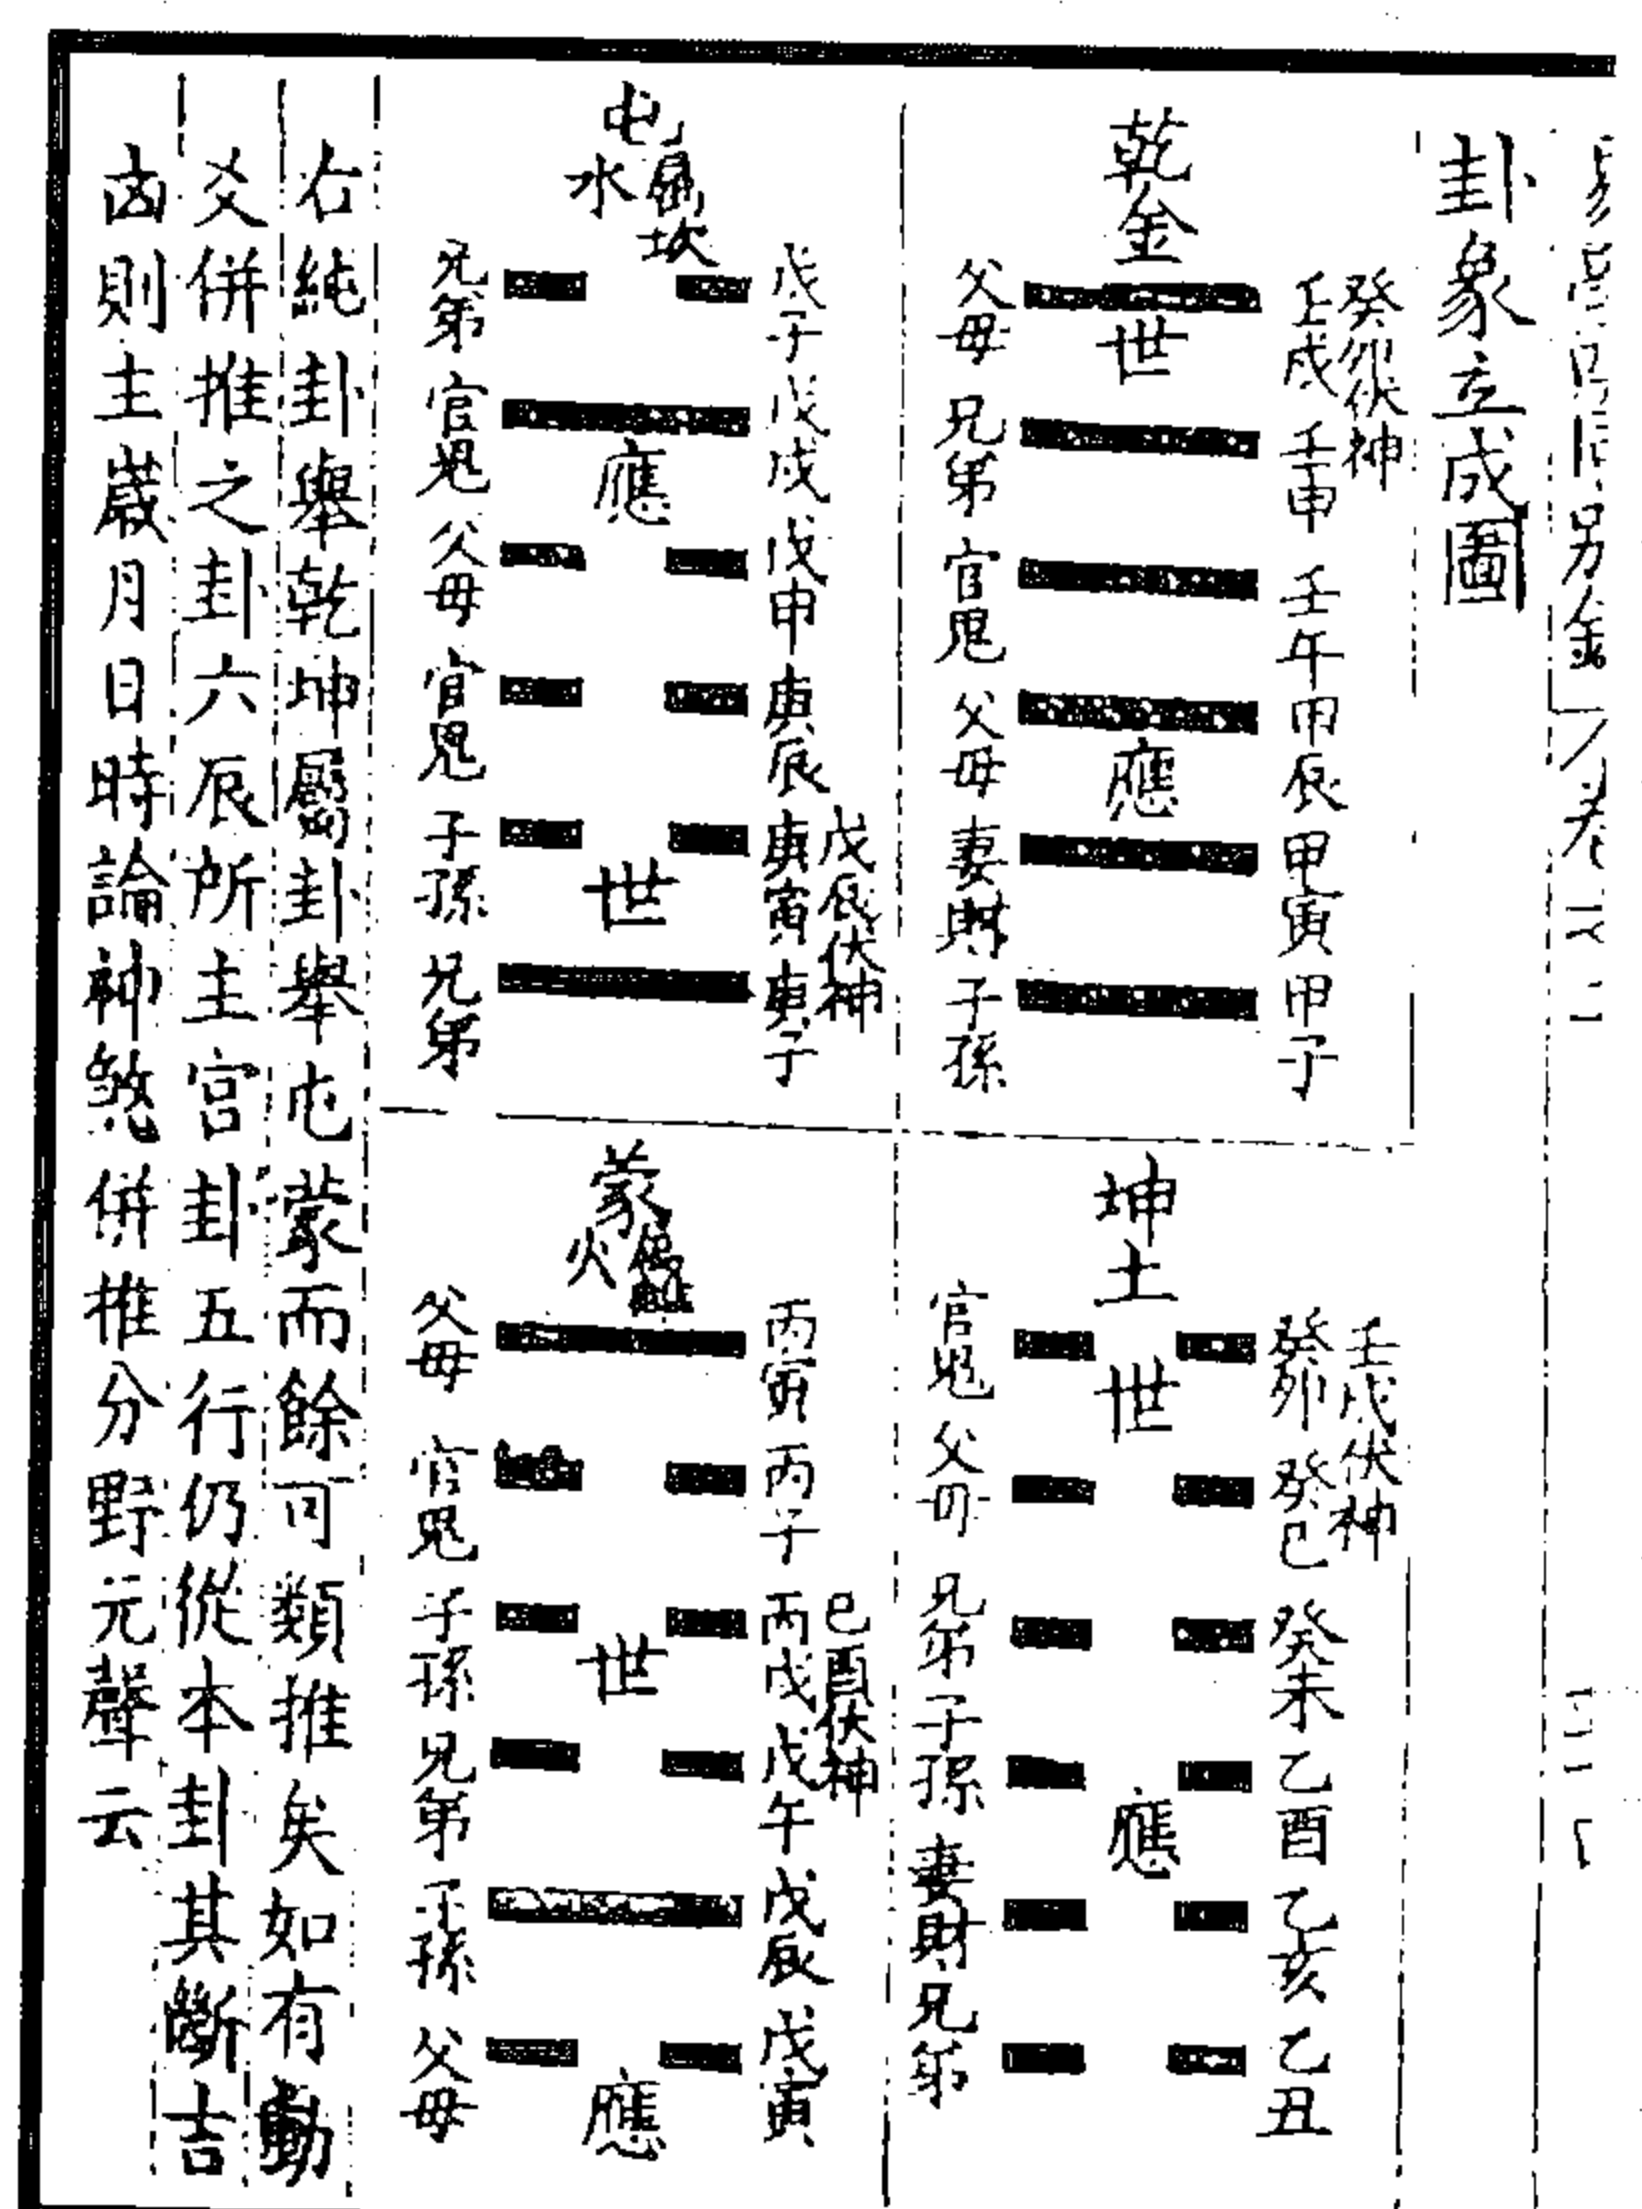 卦象立成圖
乾金
癸卯伏神
壬戌 壬申 壬午 甲辰 甲寅 甲子
世 應
父母 兄弟 官鬼 父母 妻財 子孫
坤土
壬戌伏神
癸卯 癸巳 癸未 乙酉 乙亥 乙丑
世 應
官鬼 父母 兄弟 子孫 妻財 兄弟
屯屬坎水
戊辰伏神
戊子 戊戌 戊申 庚辰 庚寅 庚子
應 世
兄弟 官鬼 父母 官鬼 子孫 兄弟
蒙 火
己酉伏神
丙寅 丙子 丙戌 戊午 戊辰 戊寅
世 應
父母 官鬼 子孫 兄弟 子孫 父母
右純卦舉乾坤屬卦舉屯蒙而餘可類推矣如有動
爻併推之卦六辰所主宮卦五行仍從本卦其斷吉
凶則主嵗月日時論神煞併推分野元聲云